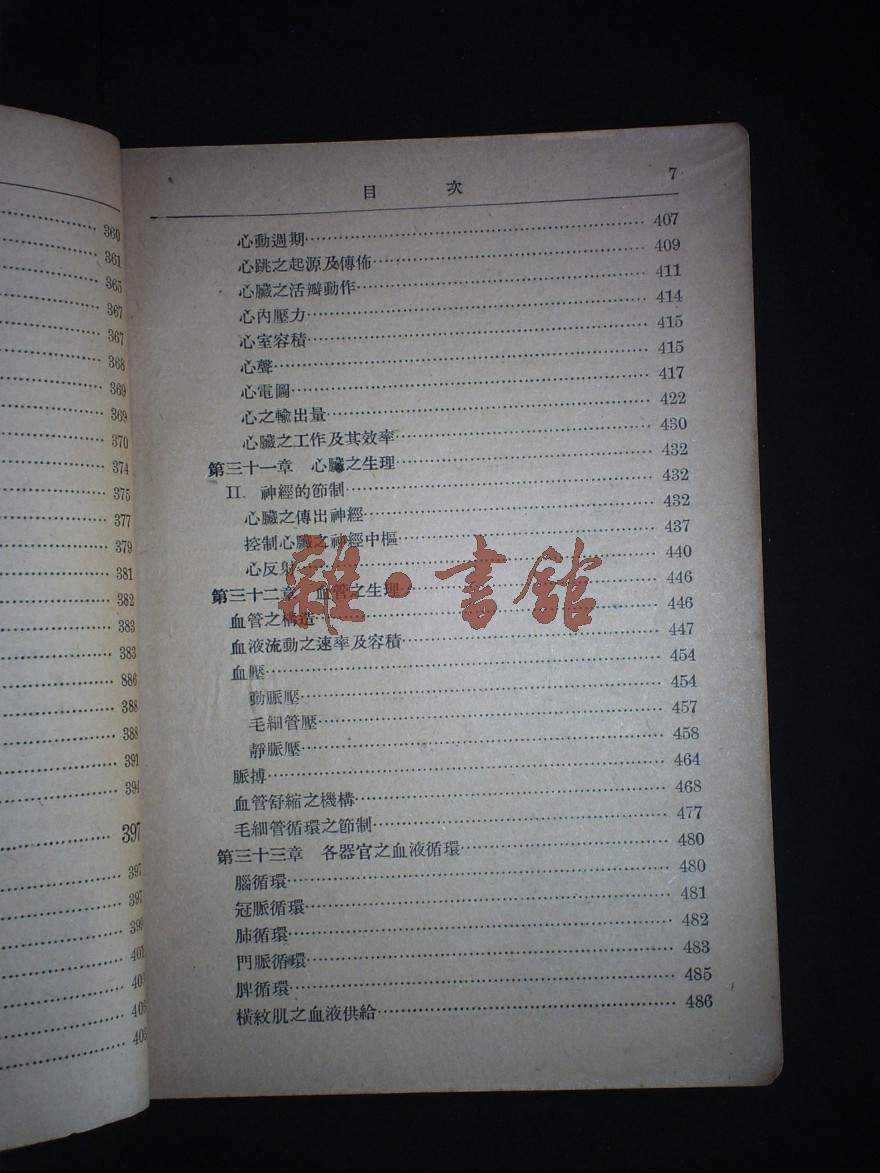 360
361
365
367
367
368
369
369
370
374
375
377
379
381
382
383
383
886
388
388
391
394
397
397
397
399
401
目 次 7
心動週期 407
心跳之起源及傳佈 409
心臟之活瓣動作 411
心內壓力 414
心室容積 415
心聲 415
心電圖 417
心之輸出量 422
心臟之工作及其效率 430
第三十一章 心臟之生理 432
II. 神經的節制 432
心臟之傳出神經 432
控制心臟之神經中樞 437
心反射 440
第三十二章 血管之生理 446
血管之構造 446
血液流動之速率及容積 447
血壓 454
動脈壓 454
毛細管壓 457
靜脈壓 458
脈搏 464
血管舒縮之機構 468
毛細管循環之節制 477
第三十三章 各器官之血液循環 480
腦循環 480
冠脈循環 481
肺循環 482
門脈循環 483
脾循環 485
橫紋肌之血液供給 486
雜·書館